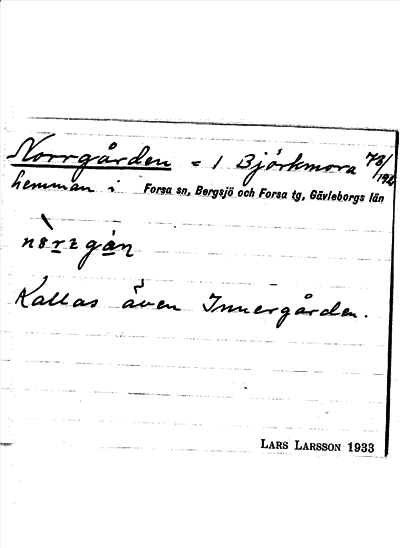 Norrgården = 1 Björkmora
hemman i Forsa sn, Bergsjö och Forsa tg, Gävleborgs län
Kallas även Innergården.
LARS LARSSON 1933